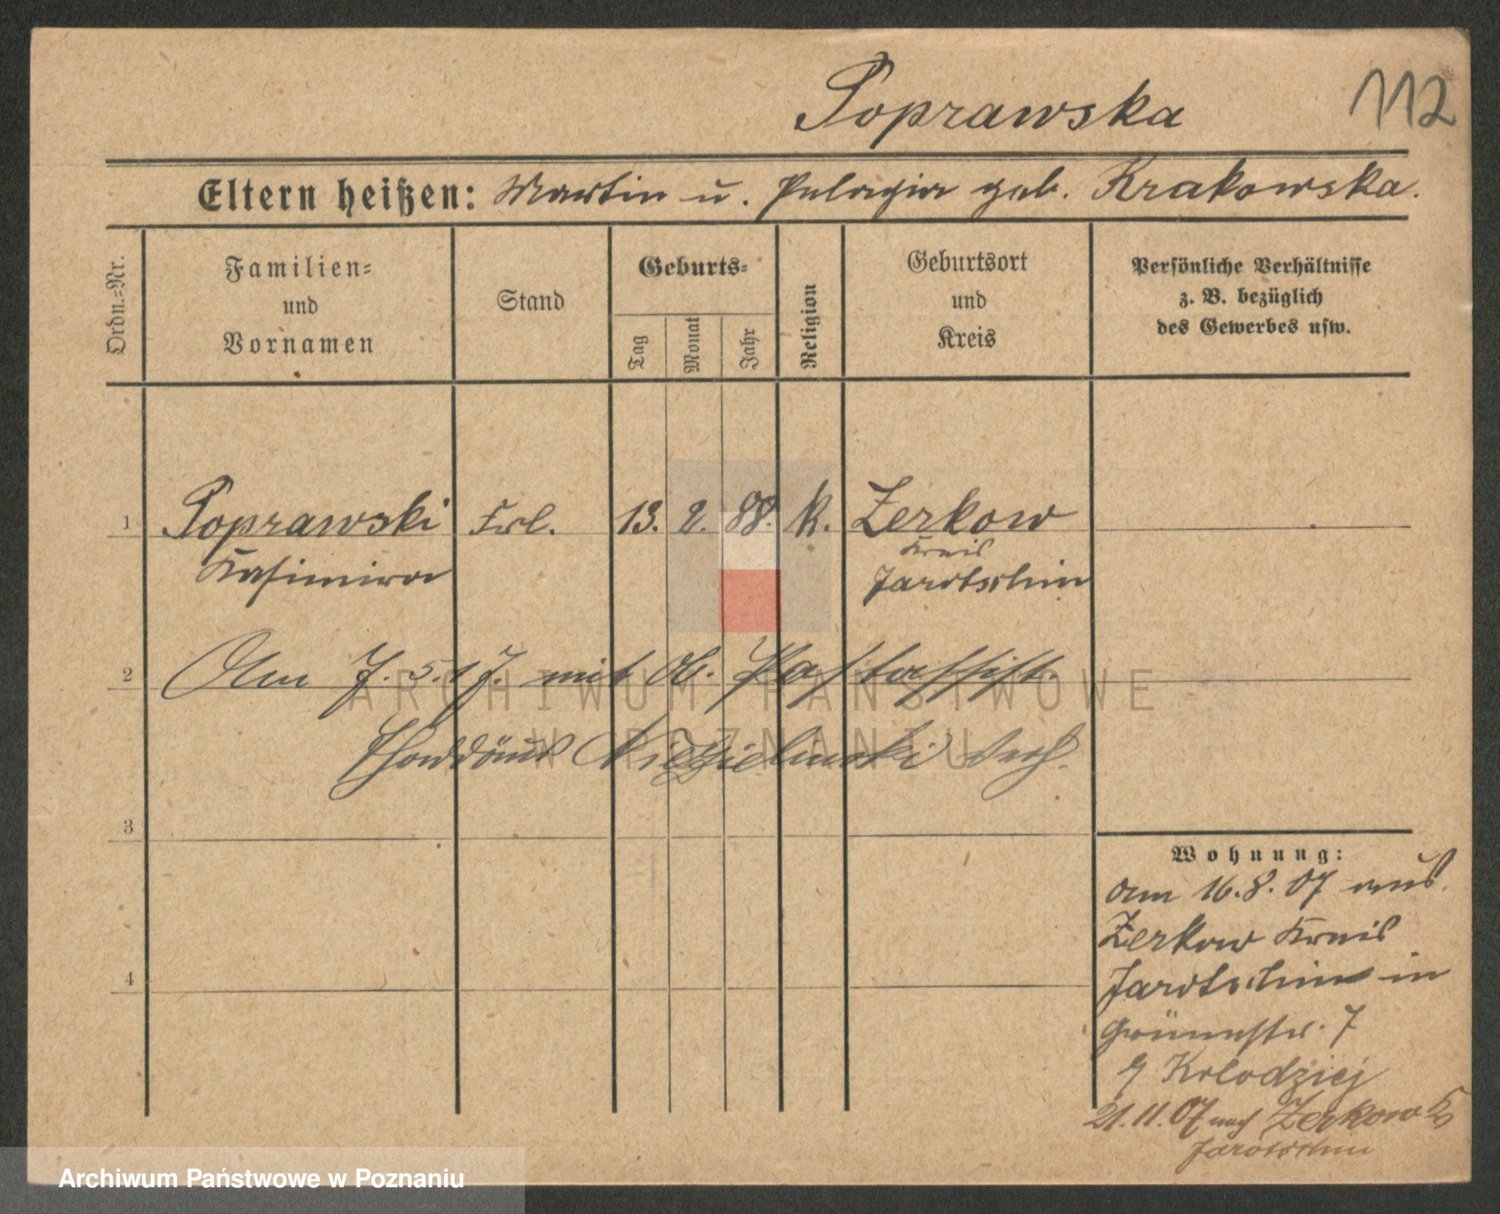 Poprawska
112
Eltern heißen: Martin u. Pelagia geb. Krakowska.
Ordn.=Nr.
Familien=
und
Vornamen
Stand
Geburts=
Tag
Monat
Jahr
Religion
Geburtsort
und
Kreis
Persönliche Verhältnisse
z. B. bezüglich
des Gewerbes usw.
1 Poprawski Frl. 13. 2. 88. k. Zerkow
Kreis
Kasimira Jarotschin
2 Am 7.5.17. mit Ob. Postassist.
Nidzielinski verh.
3
4
Wohnung:
am 16.8.07 aus
Zerkow Kreis
Jarotschin in
Grünestr. 7
Kolodziej
21.11.07 nach Zerkow
Jarotschin
ARCHIWUM PAŃSTWOWE
W POZNANIU
Archiwum Państwowe w Poznaniu